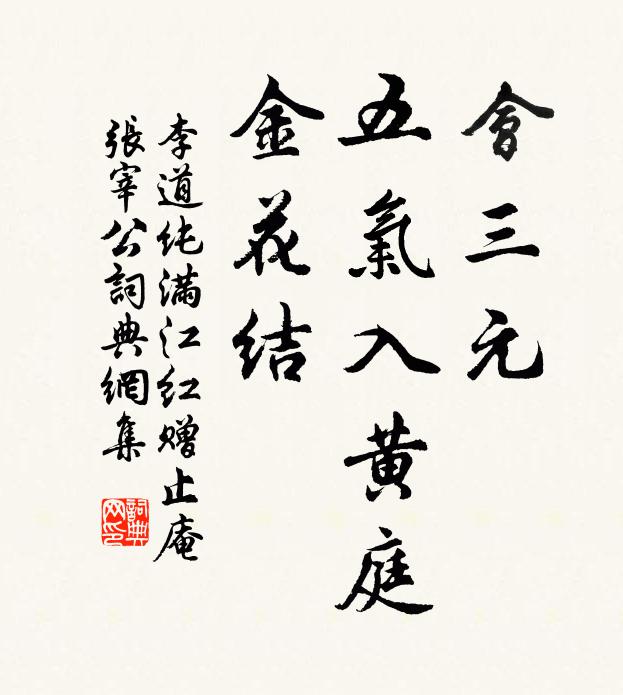 會三元
五氣入黄庭
金花结
李道纯满江红赠止庵
張宰公詞典網集
詞典网印